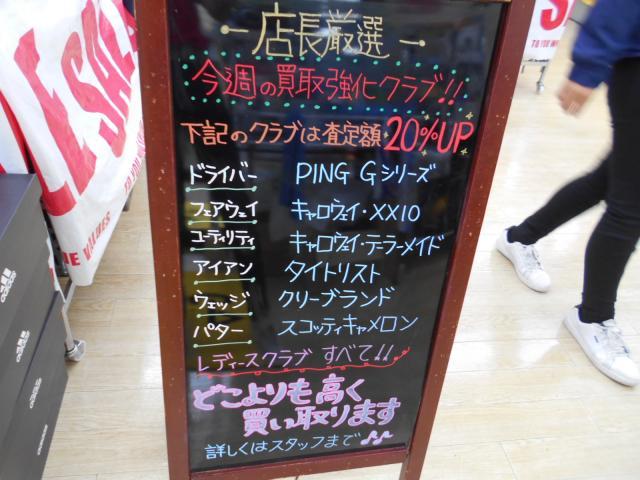 店長厳選
今週の買取強化クラブ!!
下記のクラブは査定額 20%UP
ドライバー PING Gシリーズ
フェアウェイ キャロウェイ・XXIO
ユーティリティ キャロウェイ・テーラーメイド
アイアン タイトリスト
ウェッジ クリーブランド
パター スコッティキャメロン
レディースクラブ すべて!!
どこよりも高く
買い取ります
詳しくはスタッフまで♪♪
SALE
adidas